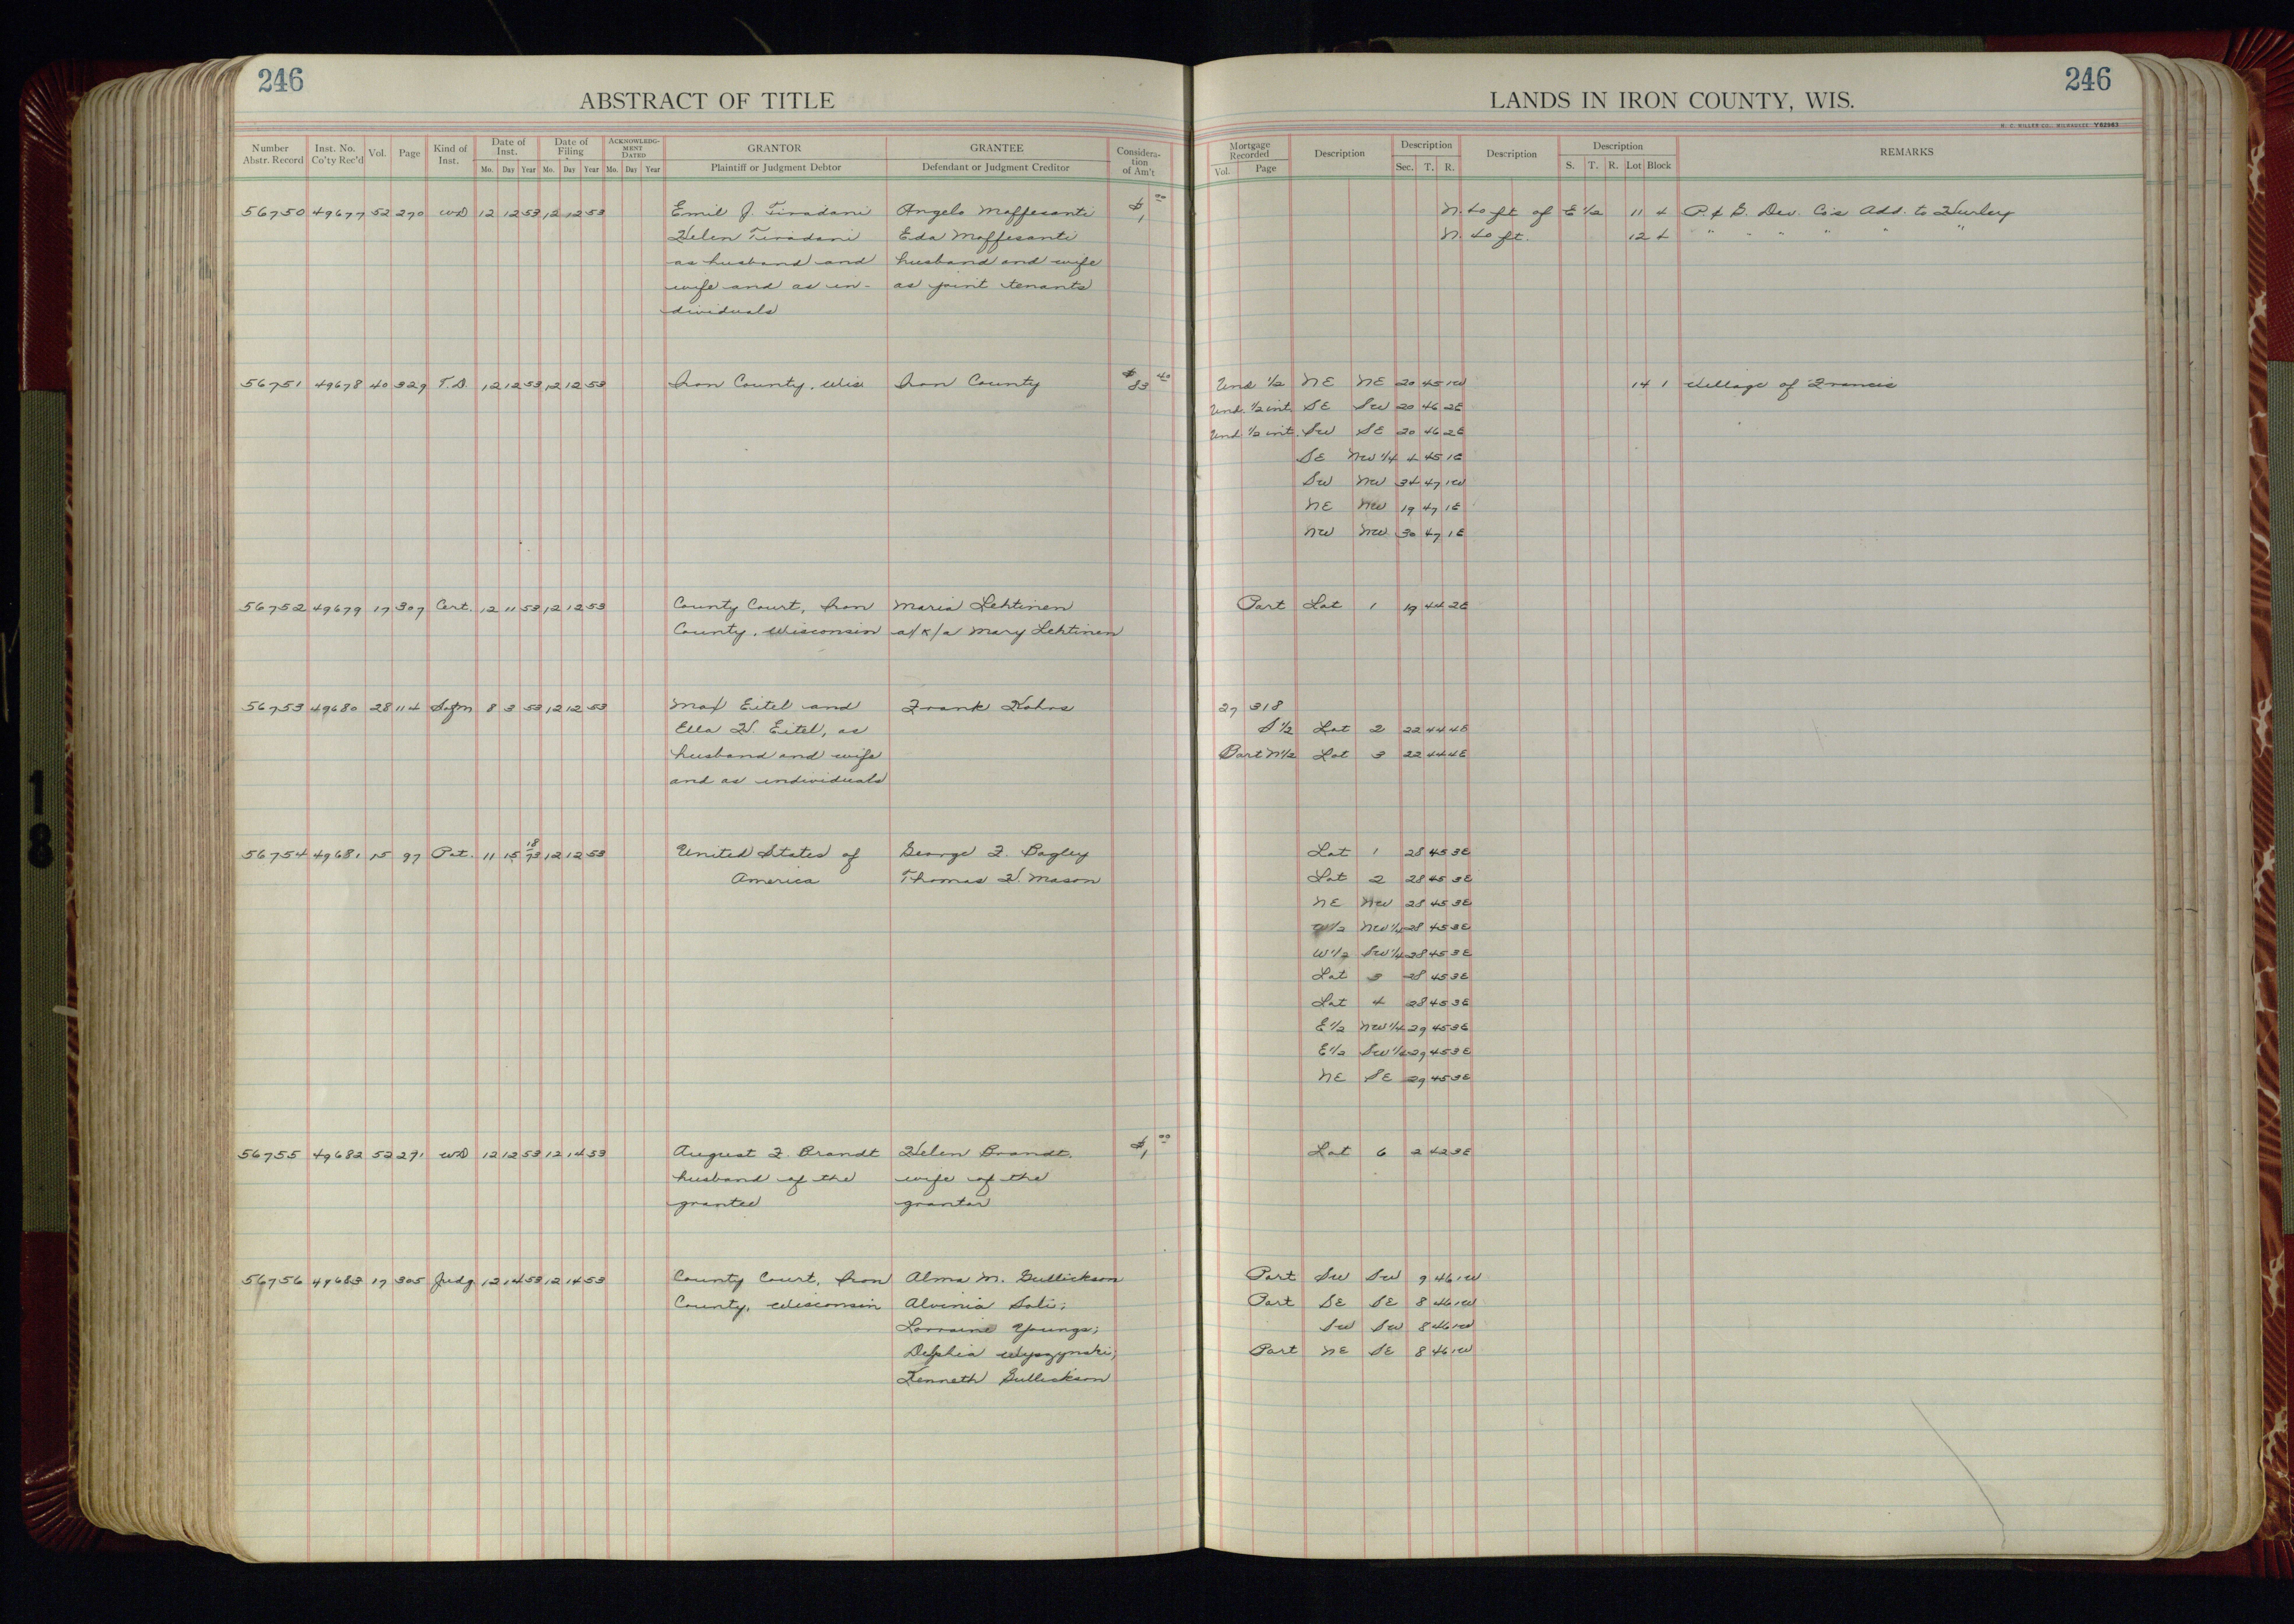 246
ABSTRACT OF TITLE
Number Abstr. Record Inst. No. Co'ty Rec'd Vol. Page Kind of Inst. Date of Inst. Mo. Day Year Date of Filing Mo. Day Year ACKNOWLEDGMENT DATED Mo. Day Year GRANTOR Plaintiff or Judgment Debtor GRANTEE Defendant or Judgment Creditor Consideration of Am't
56750 49677 52 270 WD 12 12 53 12 12 53 Emil J. Tiradani Angelo Maffesanti $1 00
Helen Tiradani Eda Maffesanti
as husband and husband and wife
wife and as in- as joint tenants
dividuals
56751 49678 40 329 T.D. 12 12 53 12 12 53 Iron County, Wis Iron County $83 40
56752 49679 17 307 Cert. 12 11 53 12 12 53 County Court, Iron Maria Lehtinen
County, Wisconsin a/k/a Mary Lehtinen
56753 49680 28 114 Satm 8 3 53 12 12 53 Max Eitel and Frank Kohrs
Ella H. Eitel, as
husband and wife
and as individuals
56754 49681 15 97 Pat. 11 15 18 73 12 12 53 United States of George F. Bagley
America Thomas H. Mason
56755 49682 52 271 WD 12 12 53 12 14 53 August F. Brandt Helen Brandt, $1 00
husband of the wife of the
grantee grantor
56756 49683 17 305 Judg 12 14 53 12 14 53 County Court, Iron Alma M. Gullickson
County, Wisconsin Alvinia Sali;
Lorraine Youngs;
Delphia Wyszynski;
Kenneth Gullickson
246
LANDS IN IRON COUNTY, WIS.
H. C. MILLER CO., MILWAUKEE Y82983
Mortgage Recorded Vol. Page Description Description Sec. T. R. Description Description S. T. R. Lot Block REMARKS
N. 40 ft of E 1/2 11 4 P. & G. Dev. Co's Add. to Hurley
N. 40 ft. 12 4 " " " " " "
Und 1/2 NE NE 20 45 1W 14 1 Village of Francis
Und. 1/2 int. SE SW 20 46 2E
Und 1/2 int. SW SE 20 46 2E
SE NW 1/4 4 45 1E
SW NW 34 47 1W
NE NW 19 47 1E
NW NW 30 47 1E
Part Lot 1 19 44 2E
27 318
S 1/2 Lot 2 22 44 4E
Part N 1/2 Lot 3 22 44 4E
Lot 1 28 45 3E
Lot 2 28 45 3E
NE NW 28 45 3E
W 1/2 NW 1/4 28 45 3E
W 1/2 SW 1/4 28 45 3E
Lot 3 28 45 3E
Lot 4 28 45 3E
E 1/2 NW 1/4 29 45 3E
E 1/2 SW 1/4 29 45 3E
NE SE 29 45 3E
Lot 6 2 42 3E
Part SW SW 9 46 1W
Part SE SE 8 46 1W
SW SW 8 46 1W
Part NE SE 8 46 1W
18